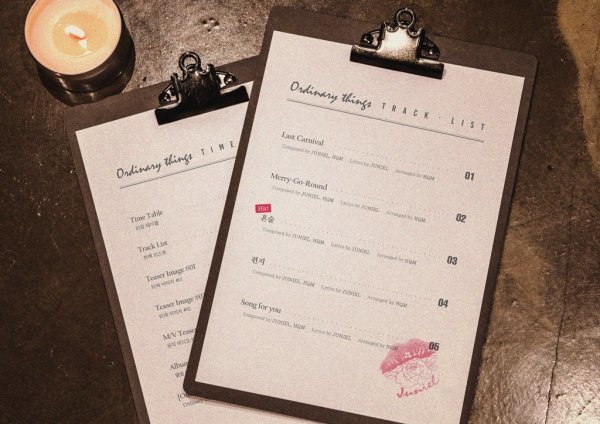 Ordinary things TRACK · LIST
Last Carnival 01
Composed by JUNIEL, HQM Lyrics by JUNIEL Arranged by HQM
Merry-Go-Round 02
Composed by JUNIEL, HQM Lyrics by JUNIEL Arranged by HQM
Hit!
혼술 03
Composed by JUNIEL, HQM Lyrics by JUNIEL Arranged by HQM
편지 04
Composed by JUNIEL, HQM Lyrics by JUNIEL Arranged by HQM
Song for you 05
Composed by JUNIEL, HQM Lyrics by JUNIEL Arranged by HQM
Juniel
Ordinary things TIME
Time Table
타임 테이블
Track List
트랙 리스트
Teaser Image #01
티저 이미지 #01
Teaser Image #0
티저 이미지
M/V Tease
뮤직비디오
Album